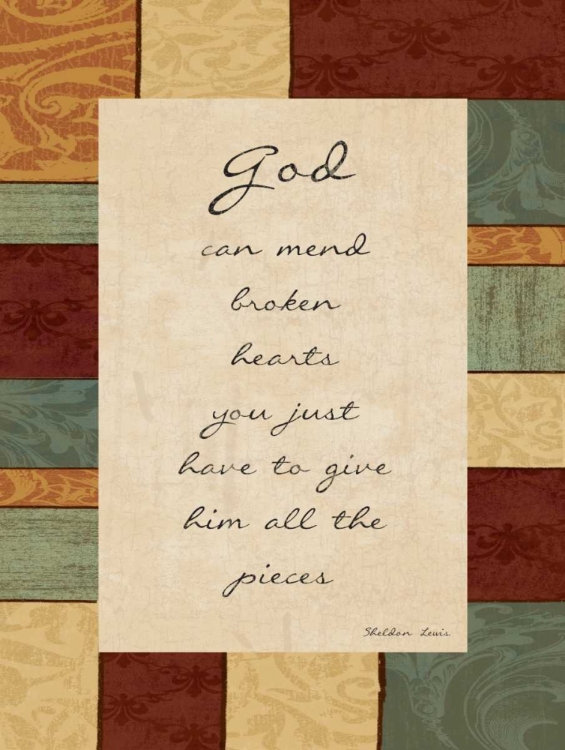 God
can mend
broken
hearts
you just
have to give
him all the
pieces
Sheldon Lewis